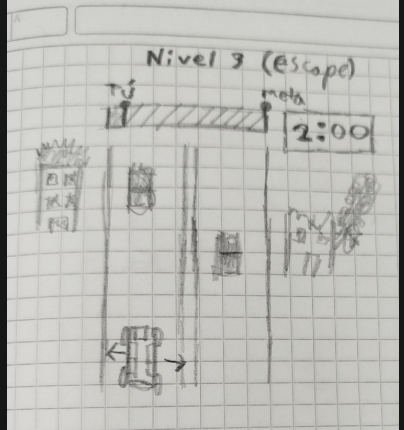 Nivel 3 (escape)
Tú
meta
2:00